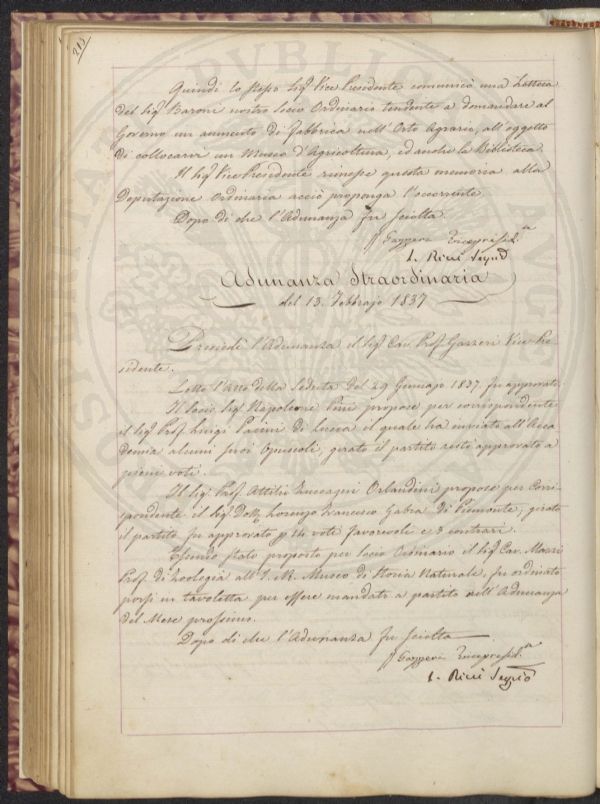 213
Quindi lo stesso Sig.r Vice Presidente comunicò una Lettera
del Sig.r Baroni nostro Socio Ordinario tendente a domandare al
Governo un aumento di fabbrica nell'Orto Agrario, all'oggetto
di collocarvi un Museo d'Agricoltura, ed anche la Biblioteca.
Il Sig.r Vice Presidente rimesse questa memoria alla
Deputazione Ordinaria acciò proponga l'occorrente.
Dopo di che l'Adunanza fu sciolta.
Gazzeri Vicepresid.te
L. Ricci Seg.rio
Adunanza Straordinaria
del 13. Febbrajo 1837
Presiedè l'Adunanza il Sig.r Cav. Prof. Gazzeri Vice Pre-
sidente.
Letto l'Atto della Seduta del 29 Gennajo 1837. fu approvato.
Il Socio Sig.r Napoleone Pini propose per corrispondente
il Sig.r Prof. Luigi Pacini di Lucca il quale ha inviato all'Acca
demia alcuni suoi Opuscoli, girato il partito restò approvato a
pieni voti.
Il Sig.r Prof. Attilio Zuccagni Orlandini propose per Corri-
spondente il Sig.r Dott. Lorenzo Francesco Gabra di Piemonte, girato
il partito fu approvato p 14 voti favorevoli e 3 contrari.
Essendo stato proposto per Socio Ordinario il Sig.r Cav. Mazzi
Prof. di Zoologia all'I. R. Museo di Storia Naturale, fu ordinato
porsi in tavoletta per essere mandato a partito nell'Adunanza
del Mese prossimo.
Dopo di che l'Adunanza fu sciolta
Gazzeri Vicepresid.te
L. Ricci Seg.rio